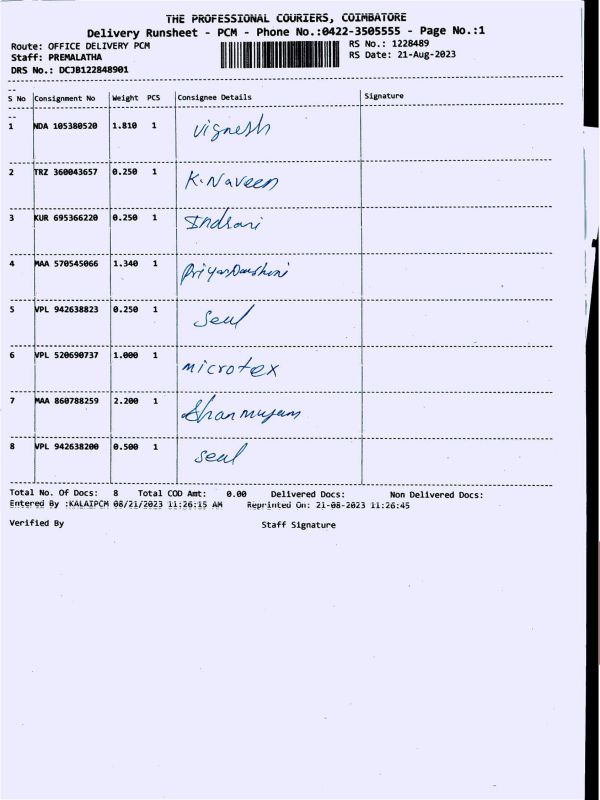 THE PROFESSIONAL COURIERS, COIMBATORE
Delivery Runsheet - PCM - Phone No.:0422-3505555 - Page No.:1
Route: OFFICE DELIVERY PCM RS No.: 1228489
Staff: PREMALATHA RS Date: 21-Aug-2023
DRS No.: DCJB122848901
S No Consignment No Weight PCS Consignee Details Signature
1 NDA 105380520 1.810 1 Vignesh
2 TRZ 360043657 0.250 1 K.Naveen
3 KUR 695366220 0.250 1 Indrani
4 MAA 570545066 1.340 1 PriyaDarshini
5 VPL 942638823 0.250 1 Seal
6 VPL 520690737 1.000 1 microtex
7 MAA 860788259 2.200 1 Shanmugam
8 VPL 942638200 0.500 1 seal
Total No. Of Docs: 8 Total COD Amt: 0.00 Delivered Docs: Non Delivered Docs:
Entered By :KALAIPCM 08/21/2023 11:26:15 AM Reprinted On: 21-08-2023 11:26:45
Verified By Staff Signature